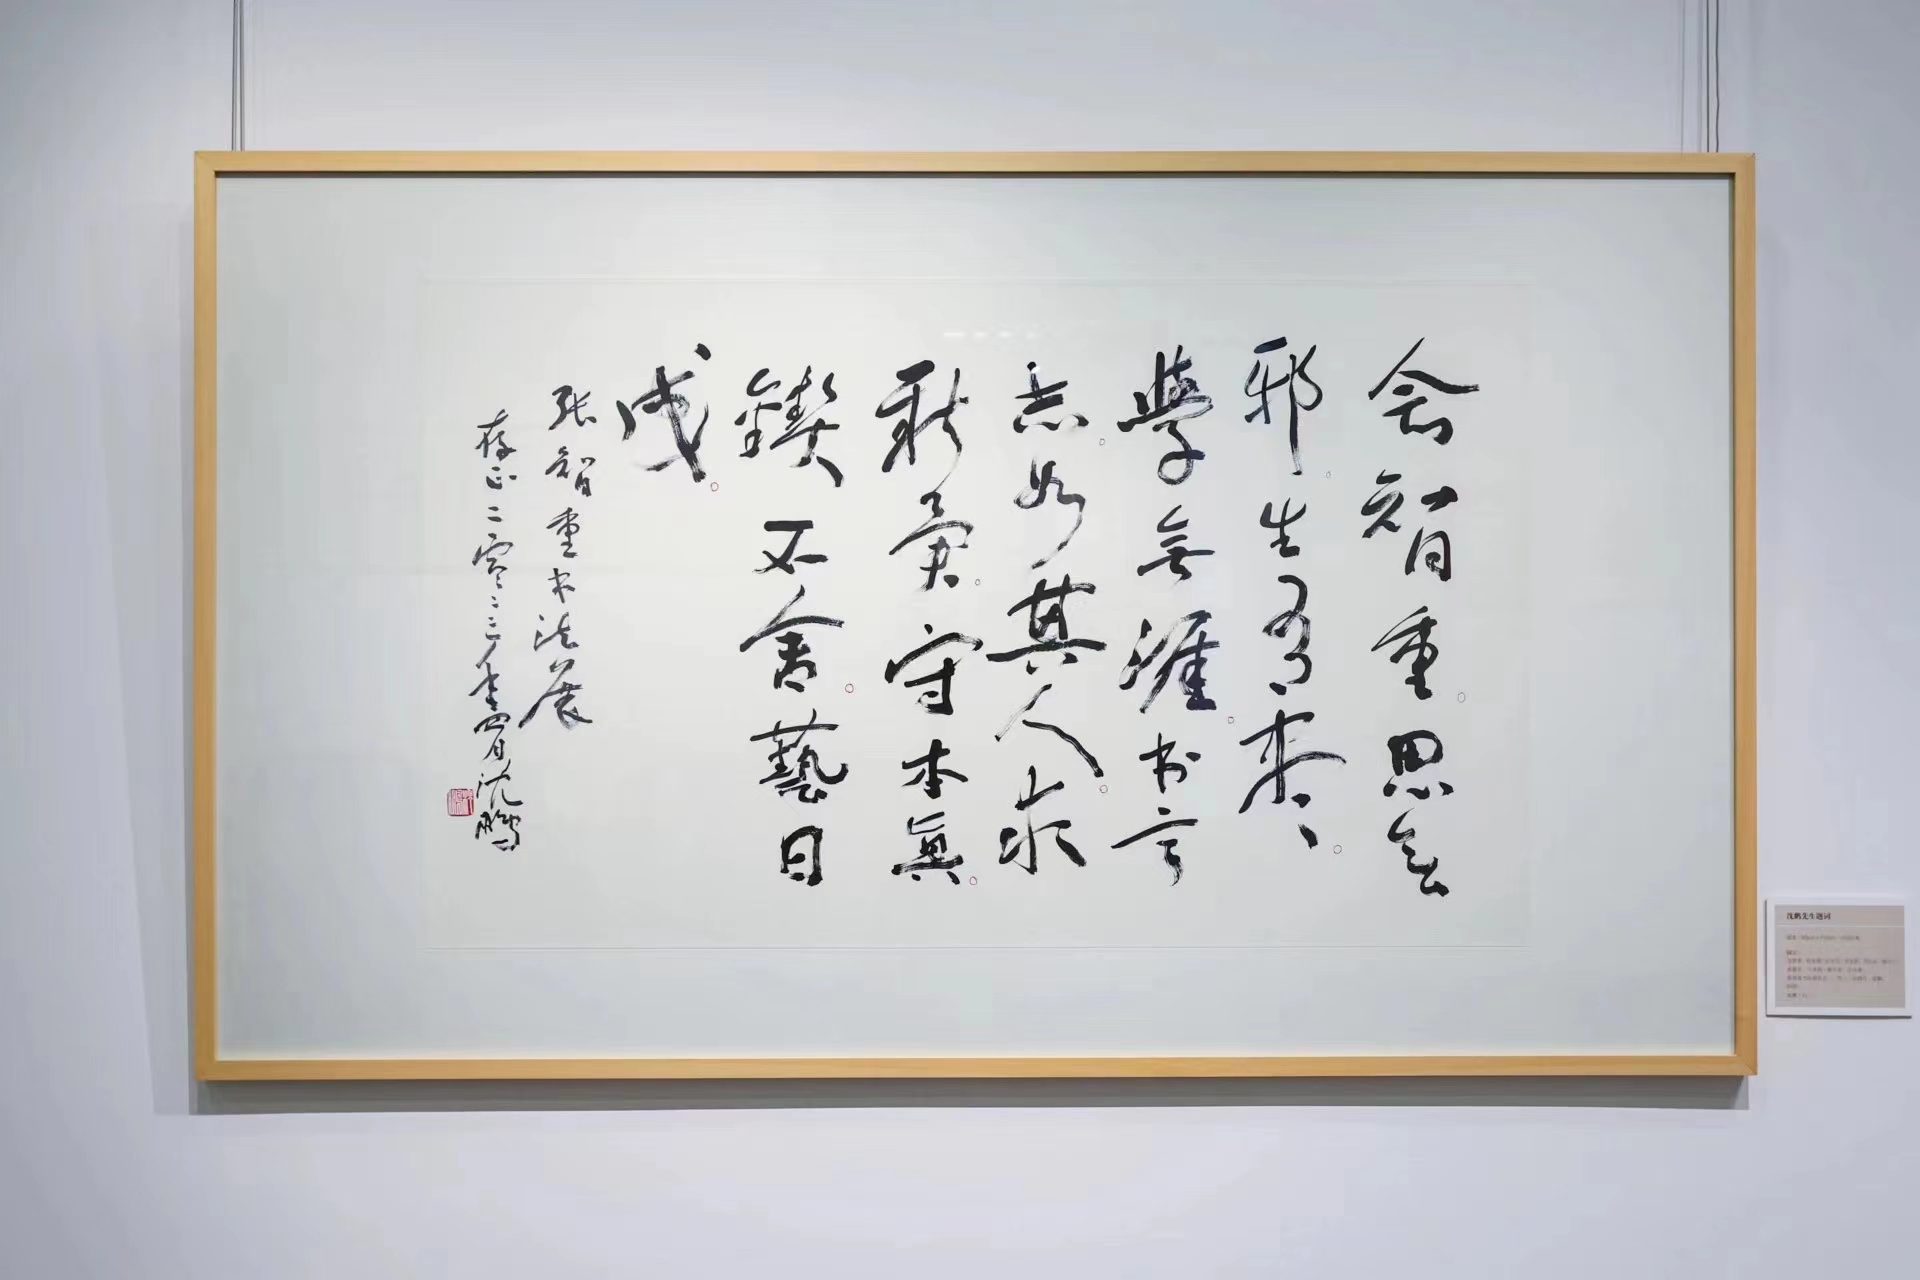 会智重思无
邪生有
學无涯书言
志如其人求
新異守本真
鍥不舍藝日
成
张智重书法展
存正二零二三年四月沈鹏
沈鹏先生题词